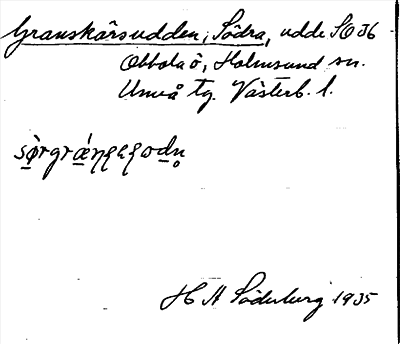 Granskärsudden, Södra, udde SO36
Obbola ö, Holmsund sn.
Umeå tg. Västerb. l.
H A Söderberg 1935